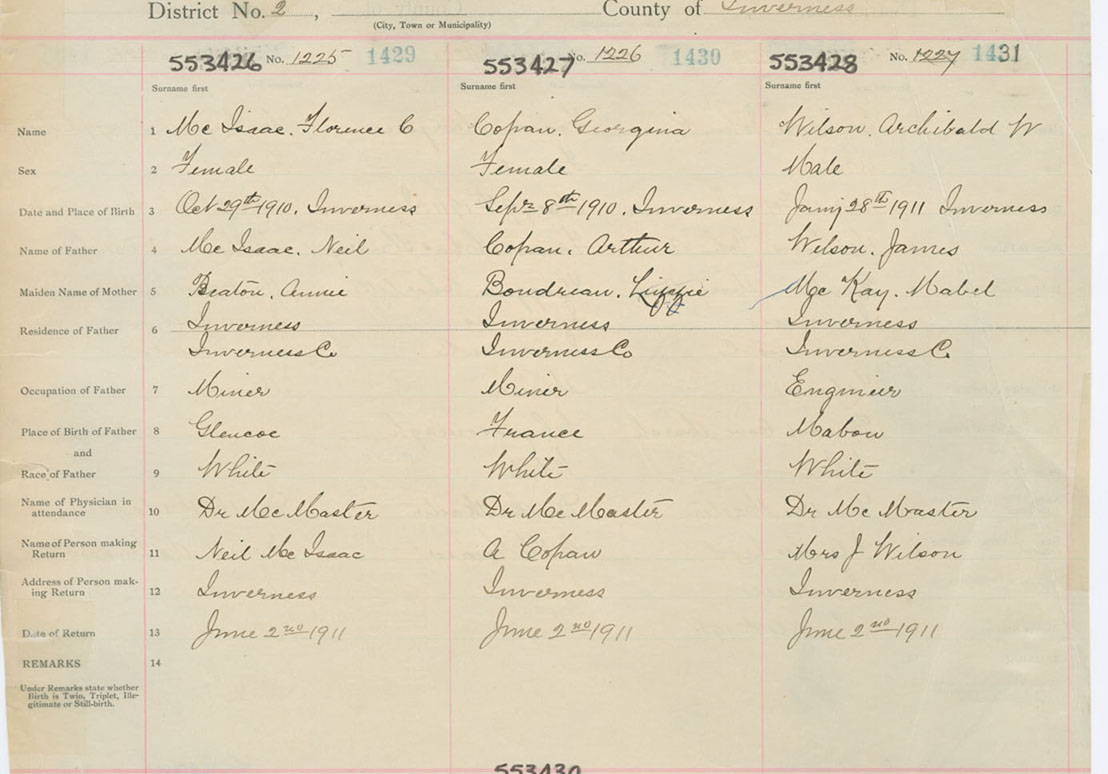 District No. 2 , County of Inverness
(City, Town or Municipality)
553426 No. 1225 1429 553427 No. 1226 1430 553428 No. 1227 1431
Surname first Surname first Surname first
Name 1 Mc Isaac. Florence C Copan. Georgina Wilson. Archibald W
Sex 2 Female Female Male
Date and Place of Birth 3 Oct 29th 1910. Inverness Sepr 8th 1910. Inverness Jany 28th 1911 Inverness
Name of Father 4 Mc Isaac. Neil Copan. Arthur Wilson. James
Maiden Name of Mother 5 Beaton. Annie Boudreau. Lizzie Mc Kay. Mabel
Residence of Father 6 Inverness Inverness Inverness
Inverness Co Inverness Co Inverness C.
Occupation of Father 7 Miner Miner Engineer
Place of Birth of Father 8 Glencoe France Mabou
and
Race of Father 9 White White White
Name of Physician in
attendance 10 Dr McMaster Dr McMaster Dr McMaster
Name of Person making
Return 11 Neil Mc Isaac A Copan Mrs J Wilson
Address of Person mak-
ing Return 12 Inverness Inverness Inverness
Date of Return 13 June 2nd 1911 June 2nd 1911 June 2nd 1911
REMARKS 14
Under Remarks state whether
Birth is Twin, Triplet, Ille-
gitimate or Still-birth.
553430